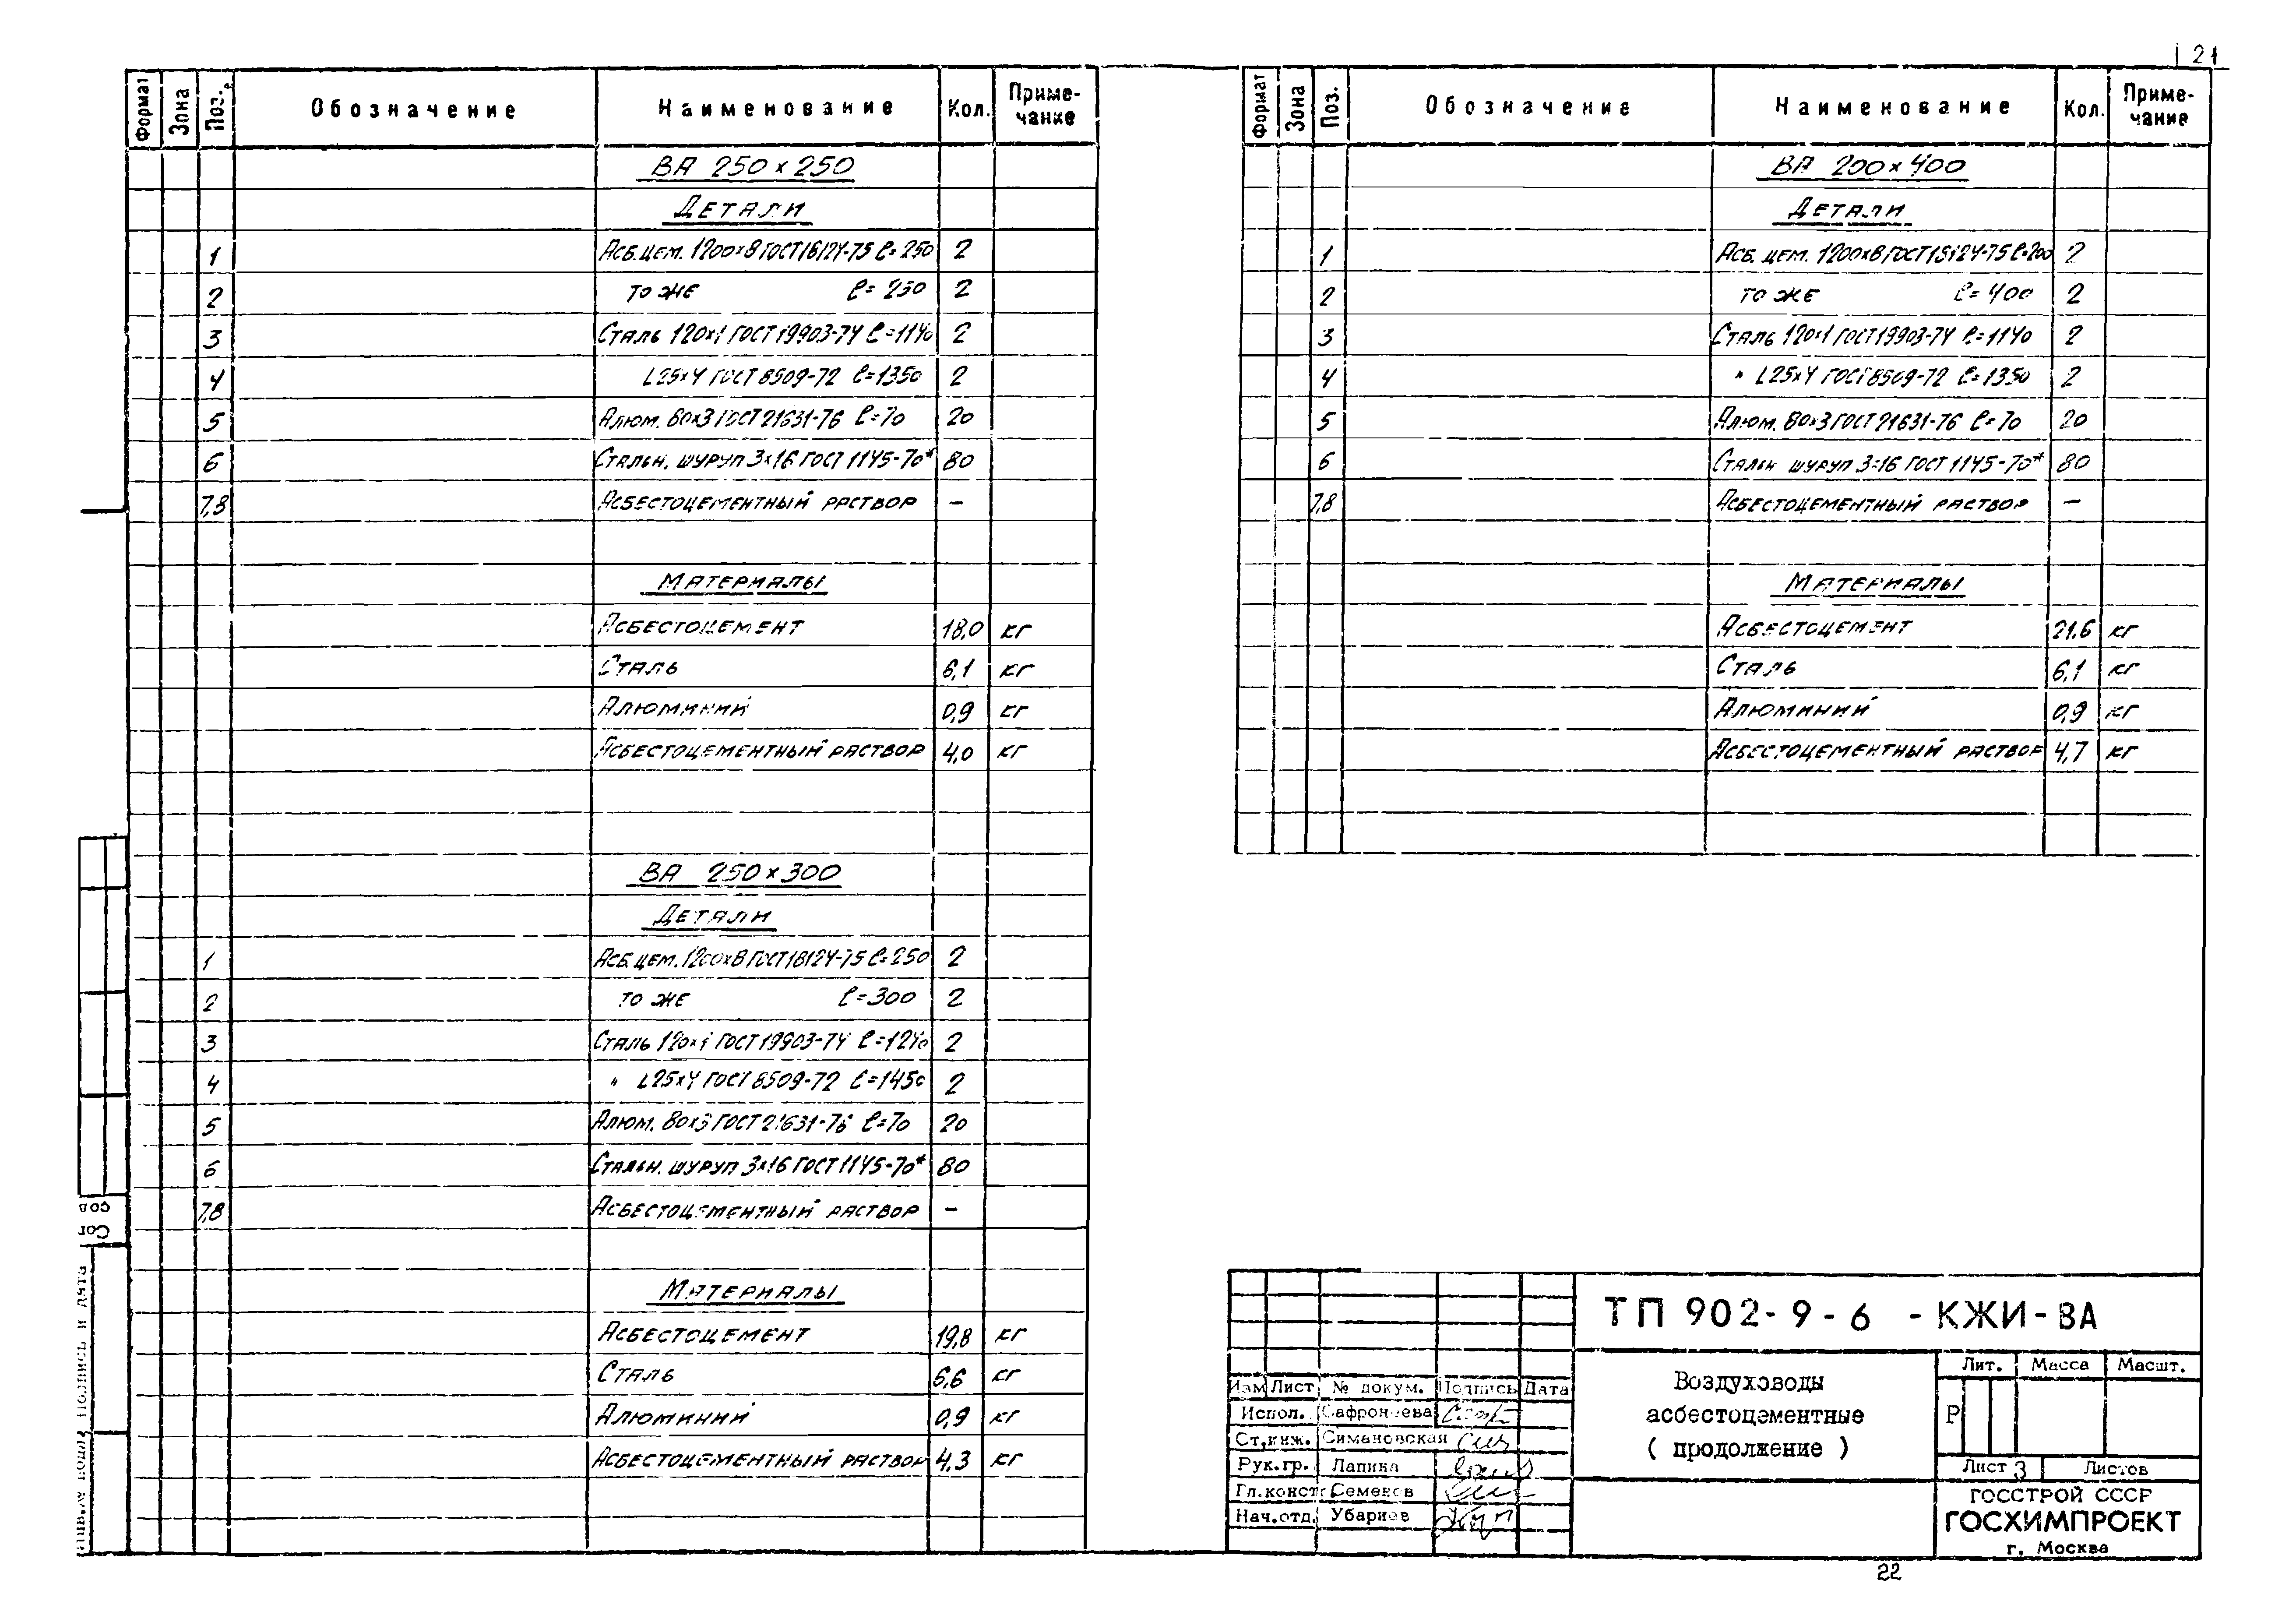 21
Формат Зона Поз. Обозначение Наименование Кол. Приме-чание
ВА 250×250
Детали
1 Асб.цем. 1200×8 ГОСТ 18124-75 ℓ=250 2
2 то же ℓ=250 2
3 Сталь 120×1 ГОСТ 19903-74 ℓ=1140 2
4 L25×4 ГОСТ 8509-72 ℓ=1350 2
5 Алюм. 80×3 ГОСТ 21631-76 ℓ=70 20
6 Стальн. шуруп 3×16 ГОСТ 1145-70* 80
7,8 Асбестоцементный раствор –
Материалы
Асбестоцемент 18,0 кг
Сталь 6,1 кг
Алюминий 0,9 кг
Асбестоцементный раствор 4,0 кг
ВА 250×300
Детали
1 Асб.цем. 1200×8 ГОСТ 18124-75 ℓ=250 2
2 то же ℓ=300 2
3 Сталь 120×1 ГОСТ 19903-74 ℓ=1240 2
4 " L25×4 ГОСТ 8509-72 ℓ=1450 2
5 Алюм. 80×3 ГОСТ 21631-76 ℓ=70 20
6 Стальн. шуруп 3×16 ГОСТ 1145-70* 80
7,8 Асбестоцементный раствор –
Материалы
Асбестоцемент 19,8 кг
Сталь 6,6 кг
Алюминий 0,9 кг
Асбестоцементный раствор 4,3 кг
Формат Зона Поз. Обозначение Наименование Кол. Приме-чание
ВА 200×400
Детали
1 Асб. цем. 1200×8 ГОСТ 18124-75 ℓ=200 2
2 то же ℓ=400 2
3 Сталь 120×1 ГОСТ 19903-74 ℓ=1140 2
4 " L25×4 ГОСТ 8509-72 ℓ=1350 2
5 Алюм. 80×3 ГОСТ 21631-76 ℓ=70 20
6 Стальн шуруп 3×16 ГОСТ 1145-70* 80
7,8 Асбестоцементный раствор –
Материалы
Асбестоцемент 21,6 кг
Сталь 6,1 кг
Алюминий 0,9 кг
Асбестоцементный раствор 4,7 кг
ТП 902-9-6 -КЖИ-ВА
Изм Лист № докум. Подпись Дата
Испол.
Ст.инж. Симановская
Рук.гр. Лапина
Гл.конст. Семенов
Нач.отд. Убариев
Воздуховоды
асбестоцементные
( продолжение )
Лит. Масса Масшт.
Р
Лист 3 Листов
ГОССТРОЙ СССР
ГОСХИМПРОЕКТ
г. Москва
22
подпись и дата